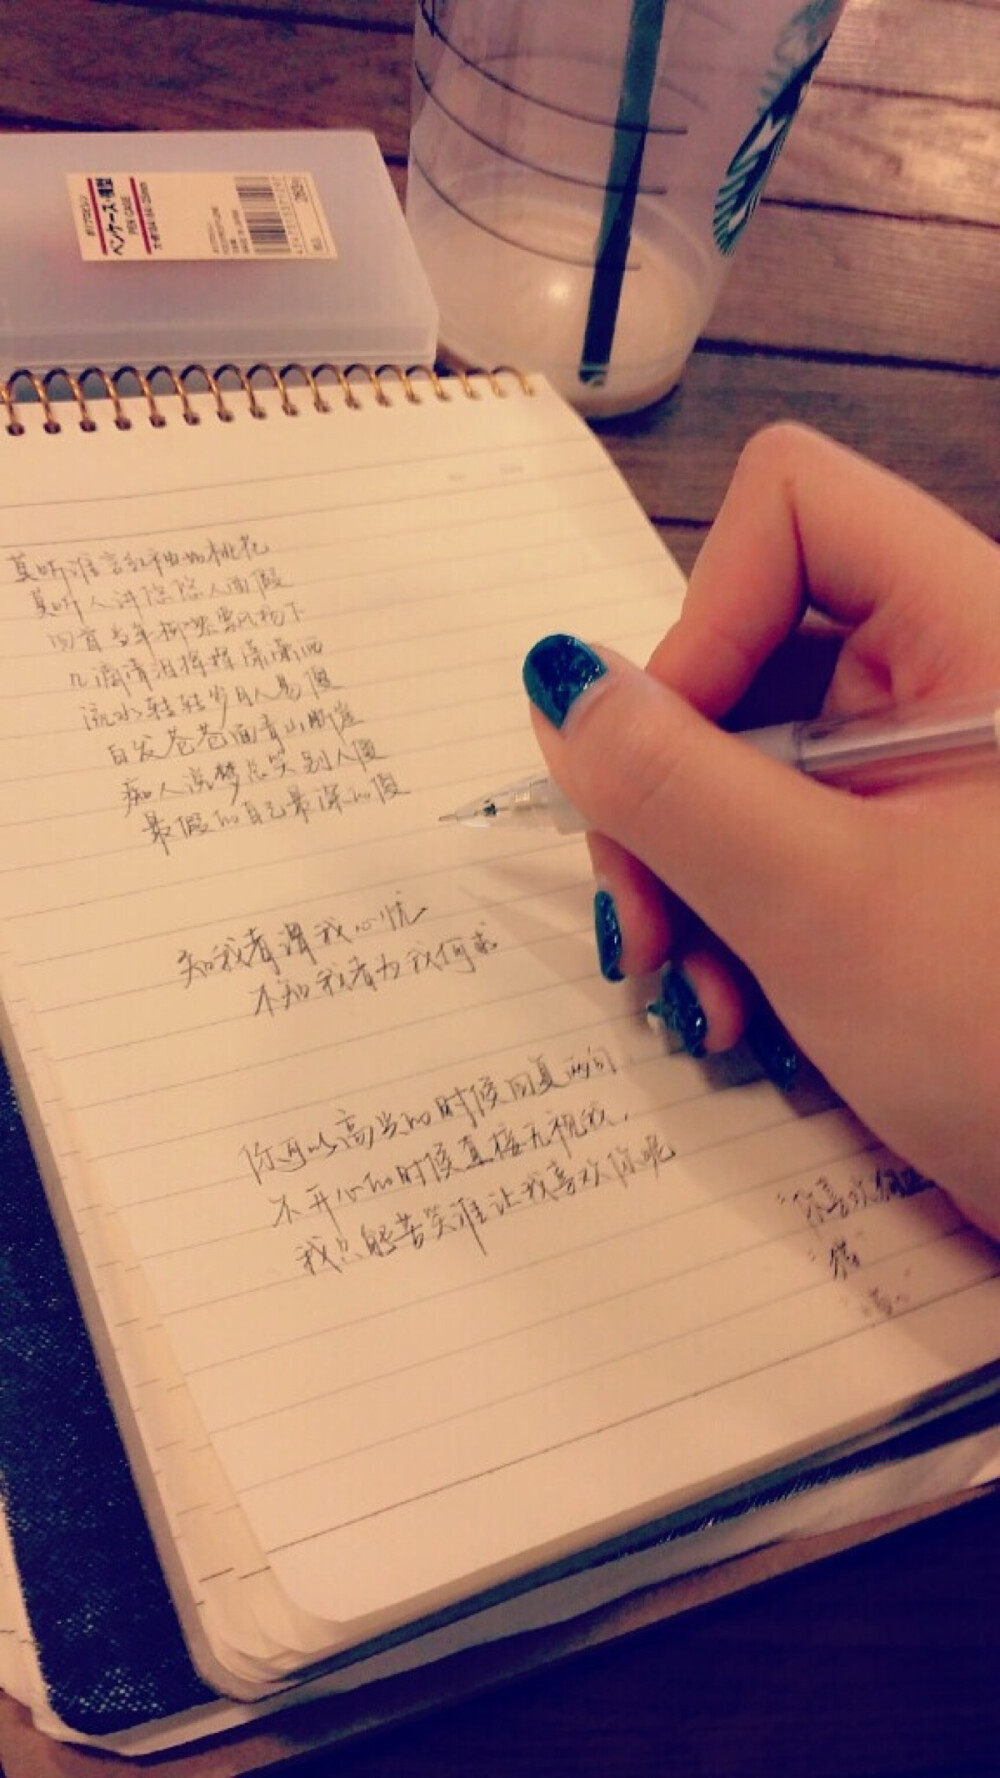 ポリプロピレン
ペンケース・横型
PEN CASE
莫听谁言红袖如桃花
莫听人讲悠悠人面假
回首多年柳絮飘杨下
几滴清泪挥挥潇潇洒
流水轻转岁月人易傻
白发苍苍面青山断崖
痴人说梦总笑别人傻
最假的自己最深的傻
知我者谓我心忧
不知我者为我何求
你可以高兴的时候回复两句
不开心的时候直接无视我,
我只能苦笑谁让我喜欢你呢
"你喜欢